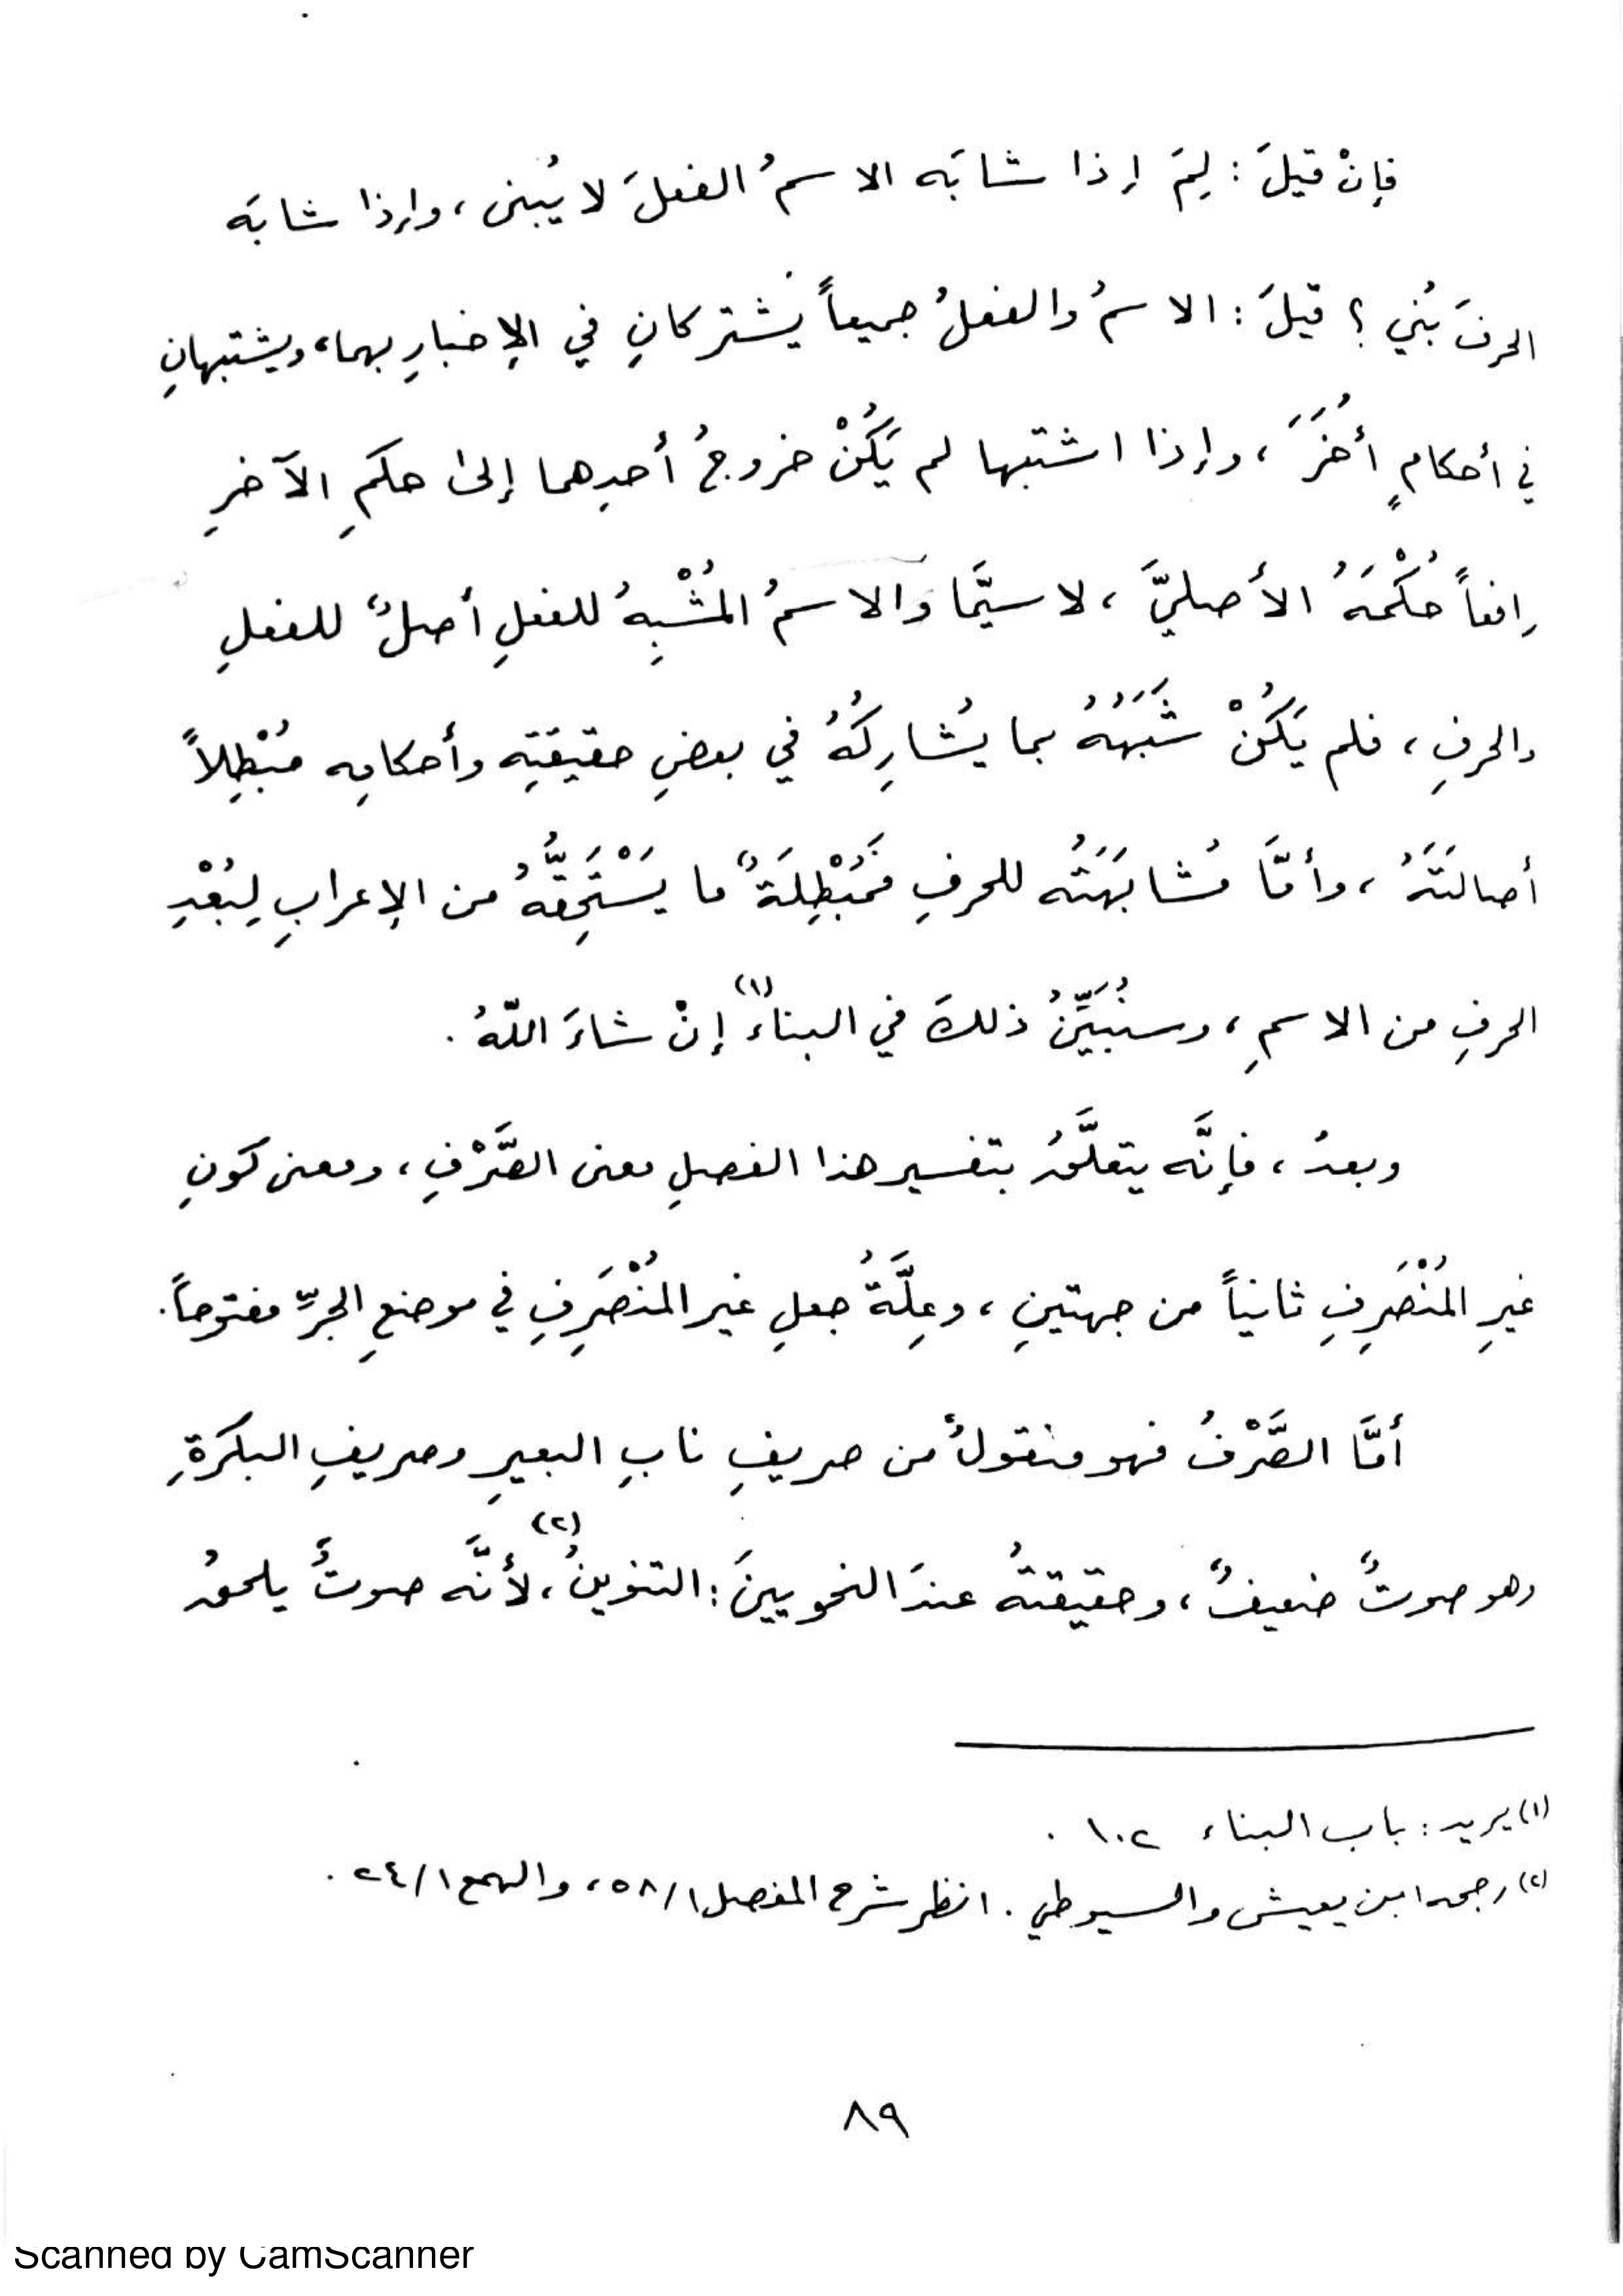 فإنْ قيلَ : لِمَ إذا شابَه الاسمُ الفعلَ لا يُبنى ، وإذا شابَه
الحرفَ بُنِي ؟ قيلَ : الاسمُ والفعلُ جميعاً يَشتركانِ في الإخبارِ بهما ، ويشتبهانِ
في أحكامٍ أُخَرَ ، وإذا اشتبها لم يَكُنْ خروجُ أحدِهما إلى حكمِ الآخرِ
رافعاً حُكْمَهُ الأصليَّ ، لا سيَّما والاسمُ المُشْبِهُ للفعلِ أصلٌ للفعلِ
والحرفِ ، فلم يَكُنْ شَبَهُهُ بما يُشارِكُهُ في بعضِ حقيقتِه وأحكامِه مُبْطِلاً
أصالتَهُ ، وأمَّا مُشابَهَتُه للحرفِ فَمُبْطِلَةٌ ما يَسْتَحِقُّهُ من الإعرابِ لِبُعْدِ
الحرفِ من الاسمِ ، وسنُبَيِّنُ ذلكَ في البناءِ (١) إنْ شاءَ اللّهُ .
وبعدُ ، فإنَّه يتعلَّقُ بتفسير هذا الفصلِ معنى الصَّرْفِ ، ومعنى كونِ
غيرِ المُنْصَرِفِ ثانياً من جهتينِ ، وعِلَّةُ جعلِ غير المُنْصَرِفِ في موضعِ الجرِّ مفتوحاً .
أمَّا الصَّرْفُ فهو منقولٌ من صريفِ نابِ البعيرِ وصريفِ البكرَةِ
وهو صوتٌ ضعيفٌ ، وحقيقتهُ عندَ النحويينَ : التنوينُ (٢) ، لأنَّه صوتٌ يلحقُ
(١) يريد : باب البناء ١٠٢ .
(٢) رجحه ابن يعيش والسيوطي . انظر شرح المفصل ١/٥٨ ، والهمع ١/٢٤ .
٨٩
Scanned by CamScanner